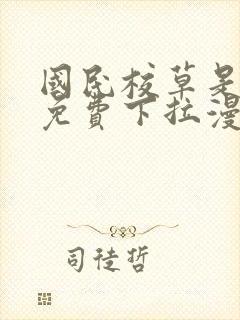 國民校草是
免費下拉漫
司徒哲